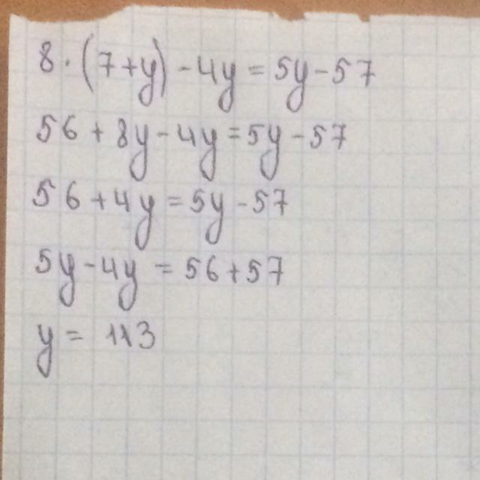 8 · (7+y) - 4y = 5y - 57
56 + 8y - 4y = 5y - 57
56 + 4y = 5y - 57
5y - 4y = 56 + 57
y = 113